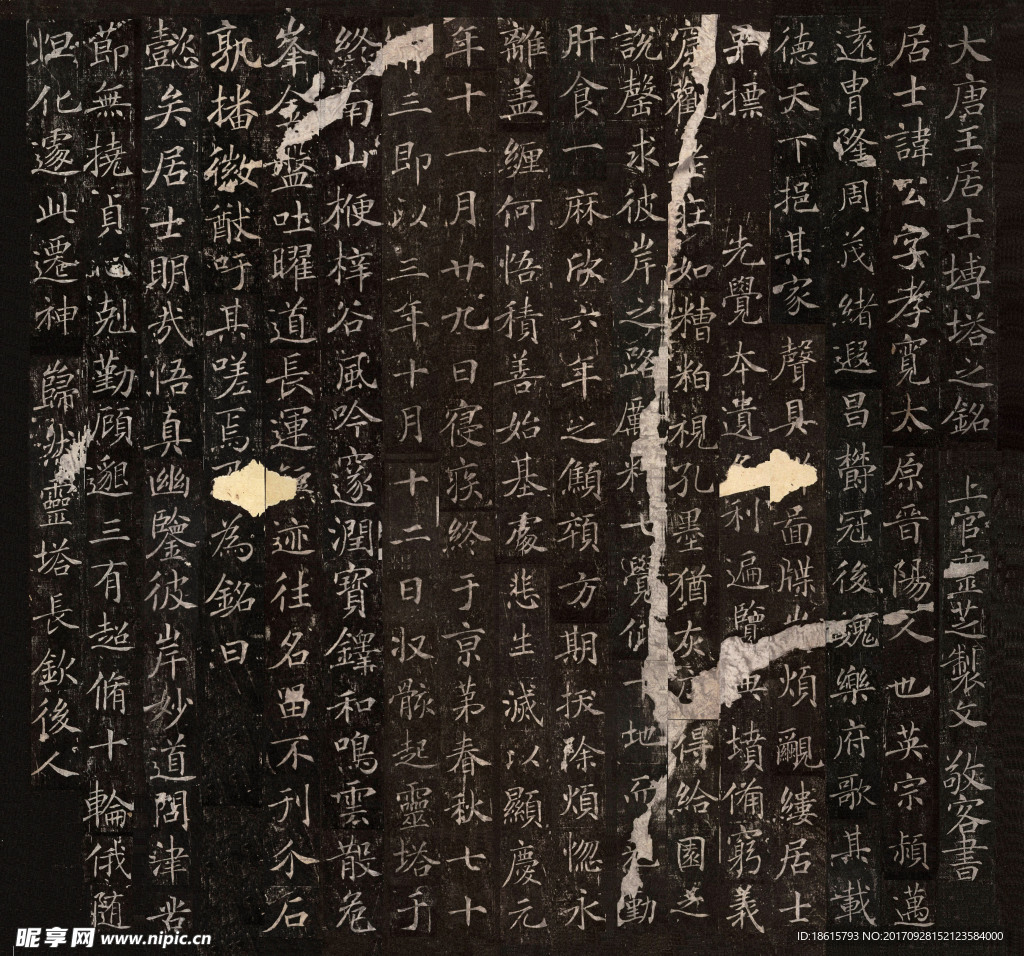 大唐王居士塼塔之銘 上官靈芝製文 敬客書
居士諱公字孝寬太原晉陽人也英宗頴邁
遠胄隆周茂緒遐昌欝冠後魏樂府歌其載
德天下挹其家聲具 面牒 煩覼縷居士
早摽 先覺本遺 利遍覽典墳俻窮義
窟觀老莊如糟粕視孔墨猶灰 得給園之
說罄求彼岸之路勵精七覺仰十地而克勤
肝食一麻欣六年之顦顇方期拔除煩惱永
離盖纏何悟積善始基處悲生滅以顯慶元
年十一月廿九日寑疾終于京第春秋七十
有三即以三年十月十二日収骸起靈塔于
終南山楩梓谷風吟邃澗寶鐸和鳴雲散危
峯金盤吐曜道長運 迹往名留不刊介石
孰播徽猷吁其嗟焉乃為銘曰
懿矣居士明哉悟真幽鑒彼岸妙道問津苦
節無撓貞心剋勤顧邈三有超脩十輪俄随
怛化遽此遷神 歸然靈塔長欽後人
昵享网 www.nipic.cn
ID:18615793 NO:20170928152123584000